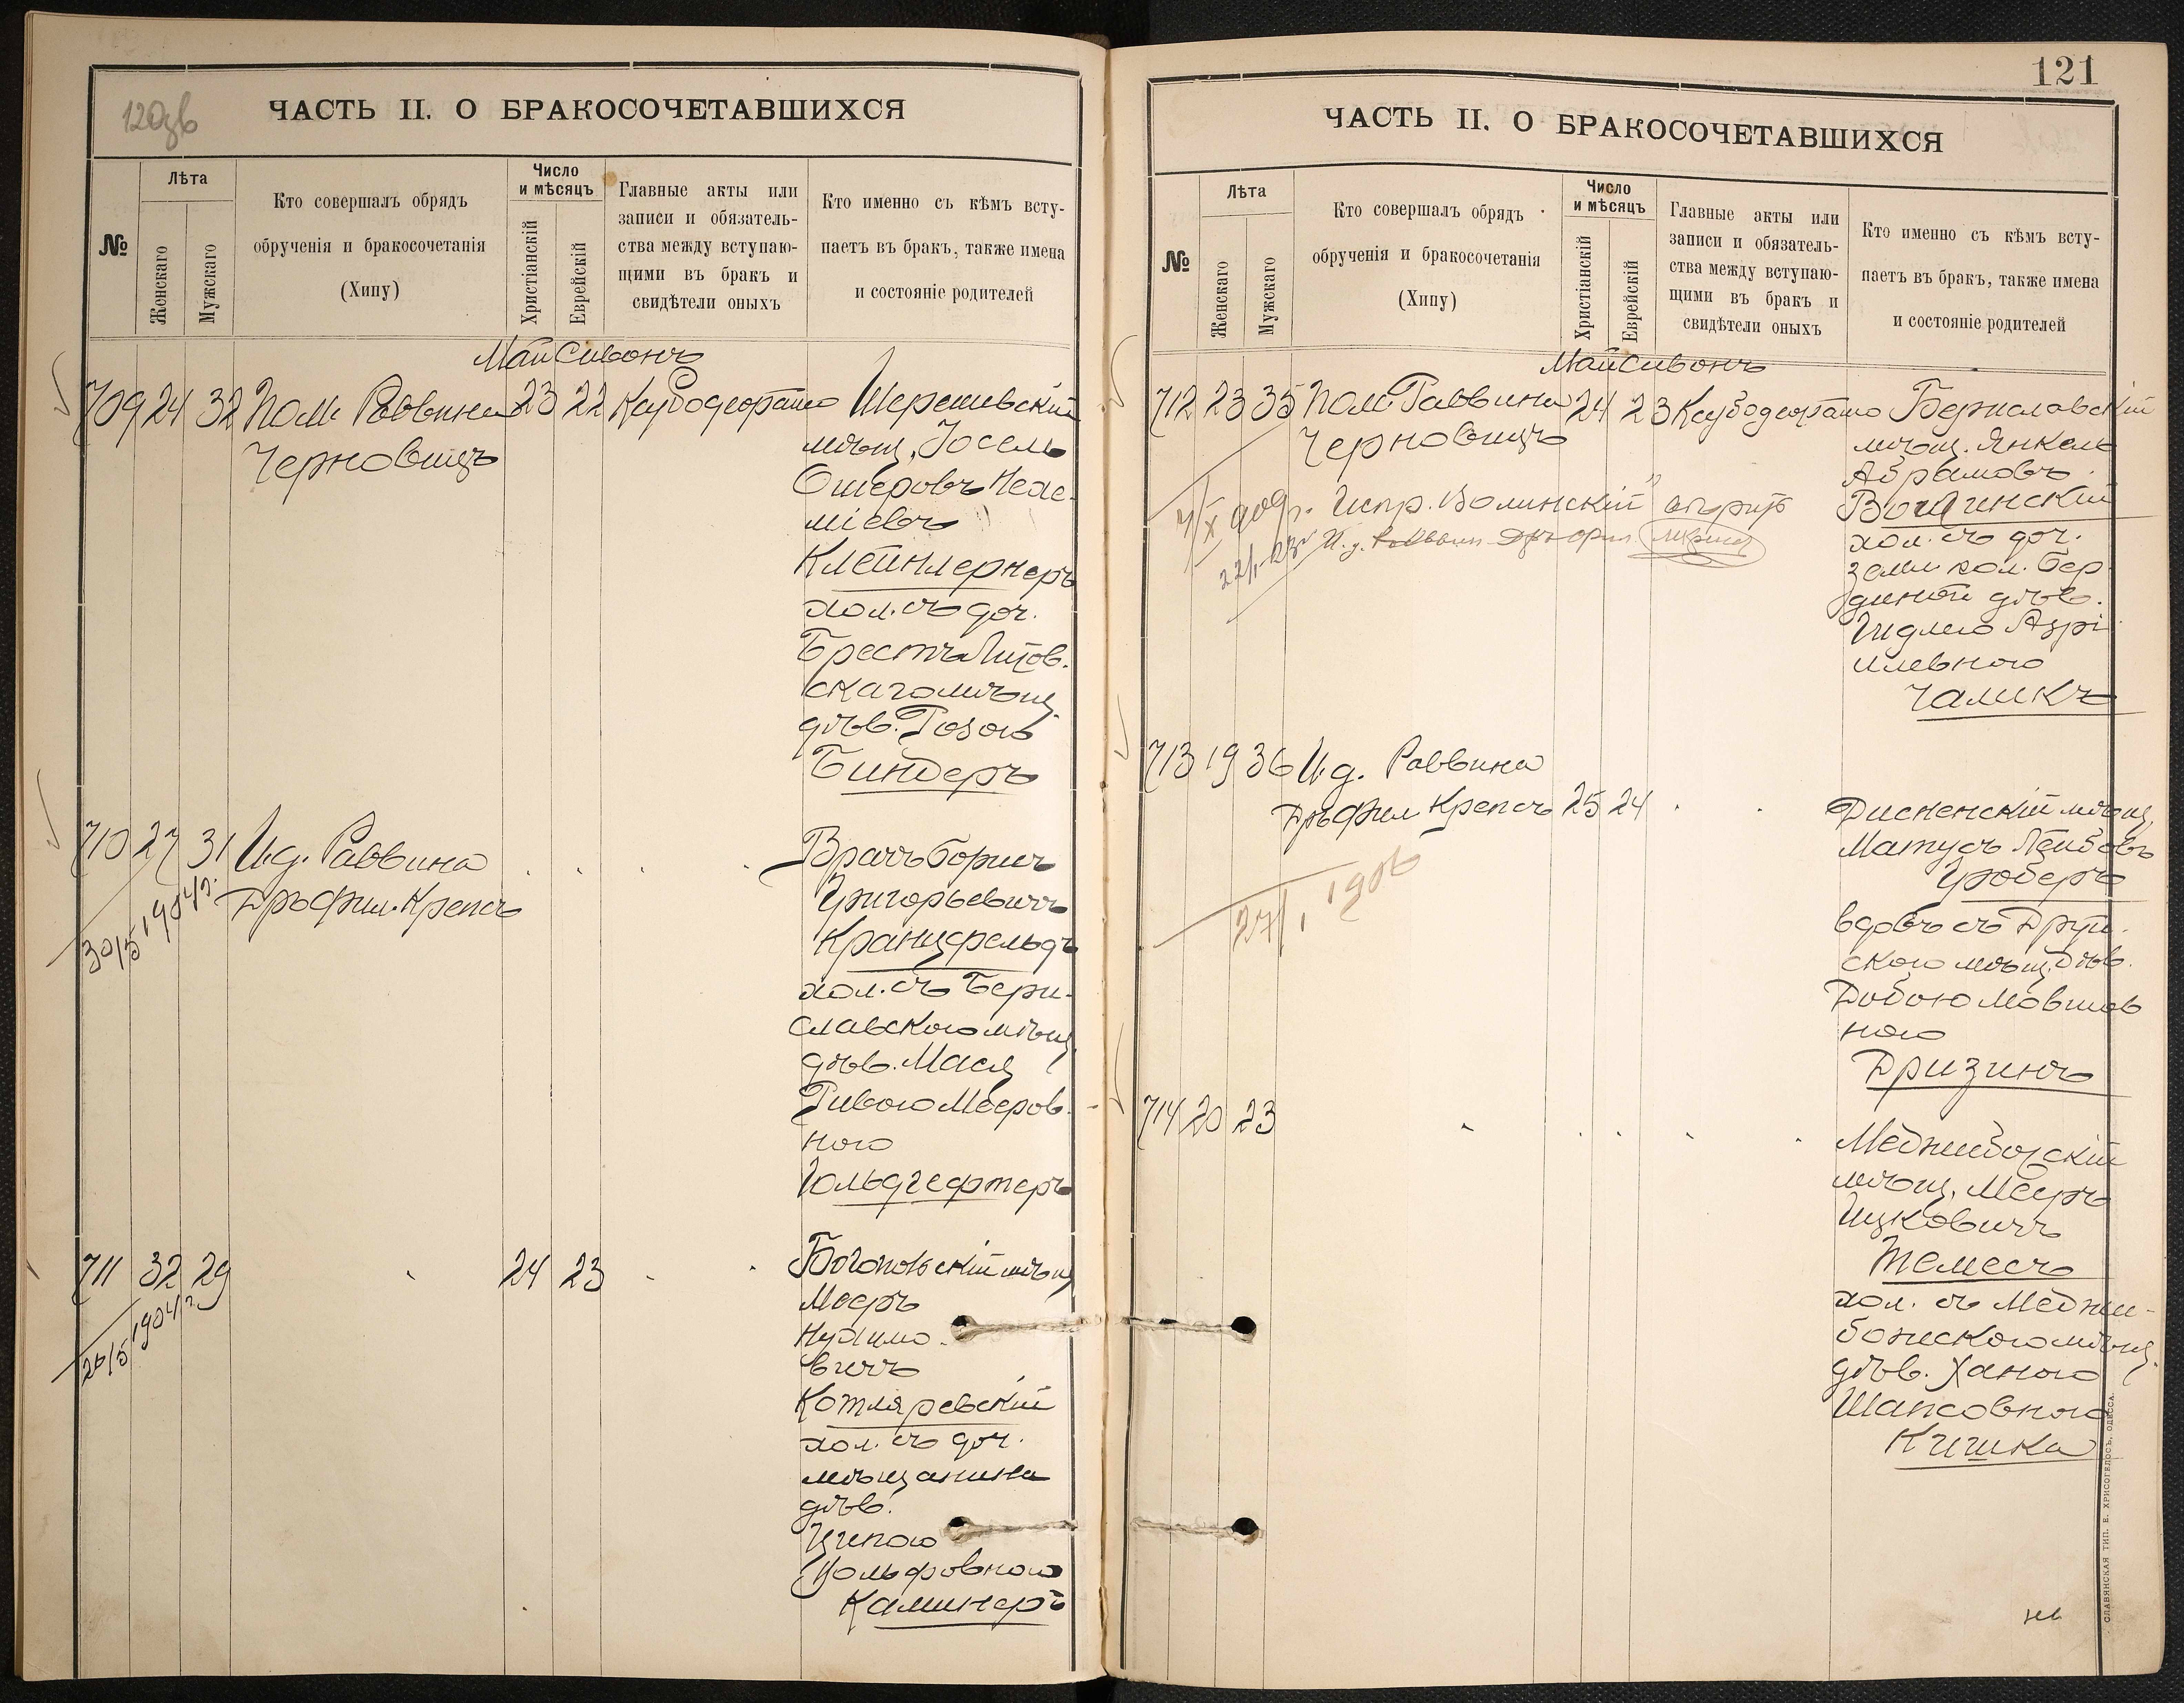 120зв
ЧАСТЬ II. О БРАКОСОЧЕТАВШИХСЯ
№
Лѣта
Женскаго
Мужскаго
Кто совершалъ обрядъ
обрученія и бракосочетанія
(Хипу)
Число
и мѣсяцъ
Христіанскій
Еврейскій
Главные акты или
записи и обязатель-
ства между вступаю-
щими въ бракъ и
свидѣтели оныхъ
Кто именно съ кѣмъ всту-
паетъ въ бракъ, также имена
и состояніе родителей
Май Сивонъ
709 24 32 Пом. Раввина 23 22 Шерешевскій
Черновицъ
мѣщ. Іосель
Ошеровъ Нехе-
міевъ
Клейнлернеръ
хол. съ доч.
Брестъ Литов.
скаго мѣщ.
дѣв. Розою
Биндеръ
710 27 31 И.д. Раввина
Дръ Фил. Крепсъ
30/5 1904 г.
Врачъ Борисъ
Григорьевичъ
Кранцфельдъ
хол. съ Бери-
славскою мѣщ.
дѣв. Мася
Ривою Мееров-
ною
Гольдгефтеръ
711 32 29 24 23
1904 г.
Богопольскій мѣщ
Мееръ
Нухимо-
вичъ
Котляревскій
хол. съ доч.
мѣщанина
дѣв.
Ципою
Вольфовною
Каминеръ
121
ЧАСТЬ II. О БРАКОСОЧЕТАВШИХСЯ
№
Лѣта
Женскаго
Мужскаго
Кто совершалъ обрядъ
обрученія и бракосочетанія
(Хипу)
Число
и мѣсяцъ
Христіанскій
Еврейскій
Главные акты или
записи и обязатель-
ства между вступаю-
щими въ бракъ и
свидѣтели оныхъ
Кто именно съ кѣмъ всту-
паетъ въ бракъ, также имена
и состояніе родителей
Май Сивонъ
712 23 35 Пом. Раввина 24 23 Бериславскій
Черновицъ
мѣщ. Янкель
Абрамовъ
Волинскій
хол. съ доч.
Испр. Волинскій
И. д.
дѣв.
илевною
Чамикъ
713 19 36 И.д. Раввина
Дръ Фил Крепсъ 25 24
27/I 1906
Дисненскій мѣщ.
Матусъ Лейбовъ
Гроберъ
вдовъ съ Друй-
скою мѣщ. дѣв.
Добою Мовшов
ною
Дризинъ
714 20 23
Меджибожскій
мѣщ. Мееръ
Ицковичъ
Темесъ
хол. съ Меджи-
божскою мѣщ.
дѣв. Ханою
Шапсовною
Кишка
СЛАВЯНСКАЯ ТИП. Е. ХРИСОГЕЛОСЪ, ОДЕССА.